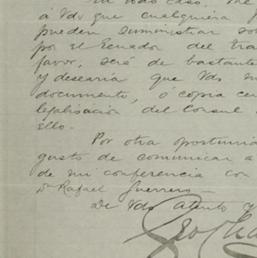 en todo caso, me
á Vds que cualquiera
pueden suministrar
por el Ecuador del
favor, será de bastante
y desearia que Vds
documento, ó copia
legalisación del Consul
ello.
Por otra oportuni
gusto de comunicar a
de mi conferencia con
Dr Rafael Guerrero
De Vds atento y